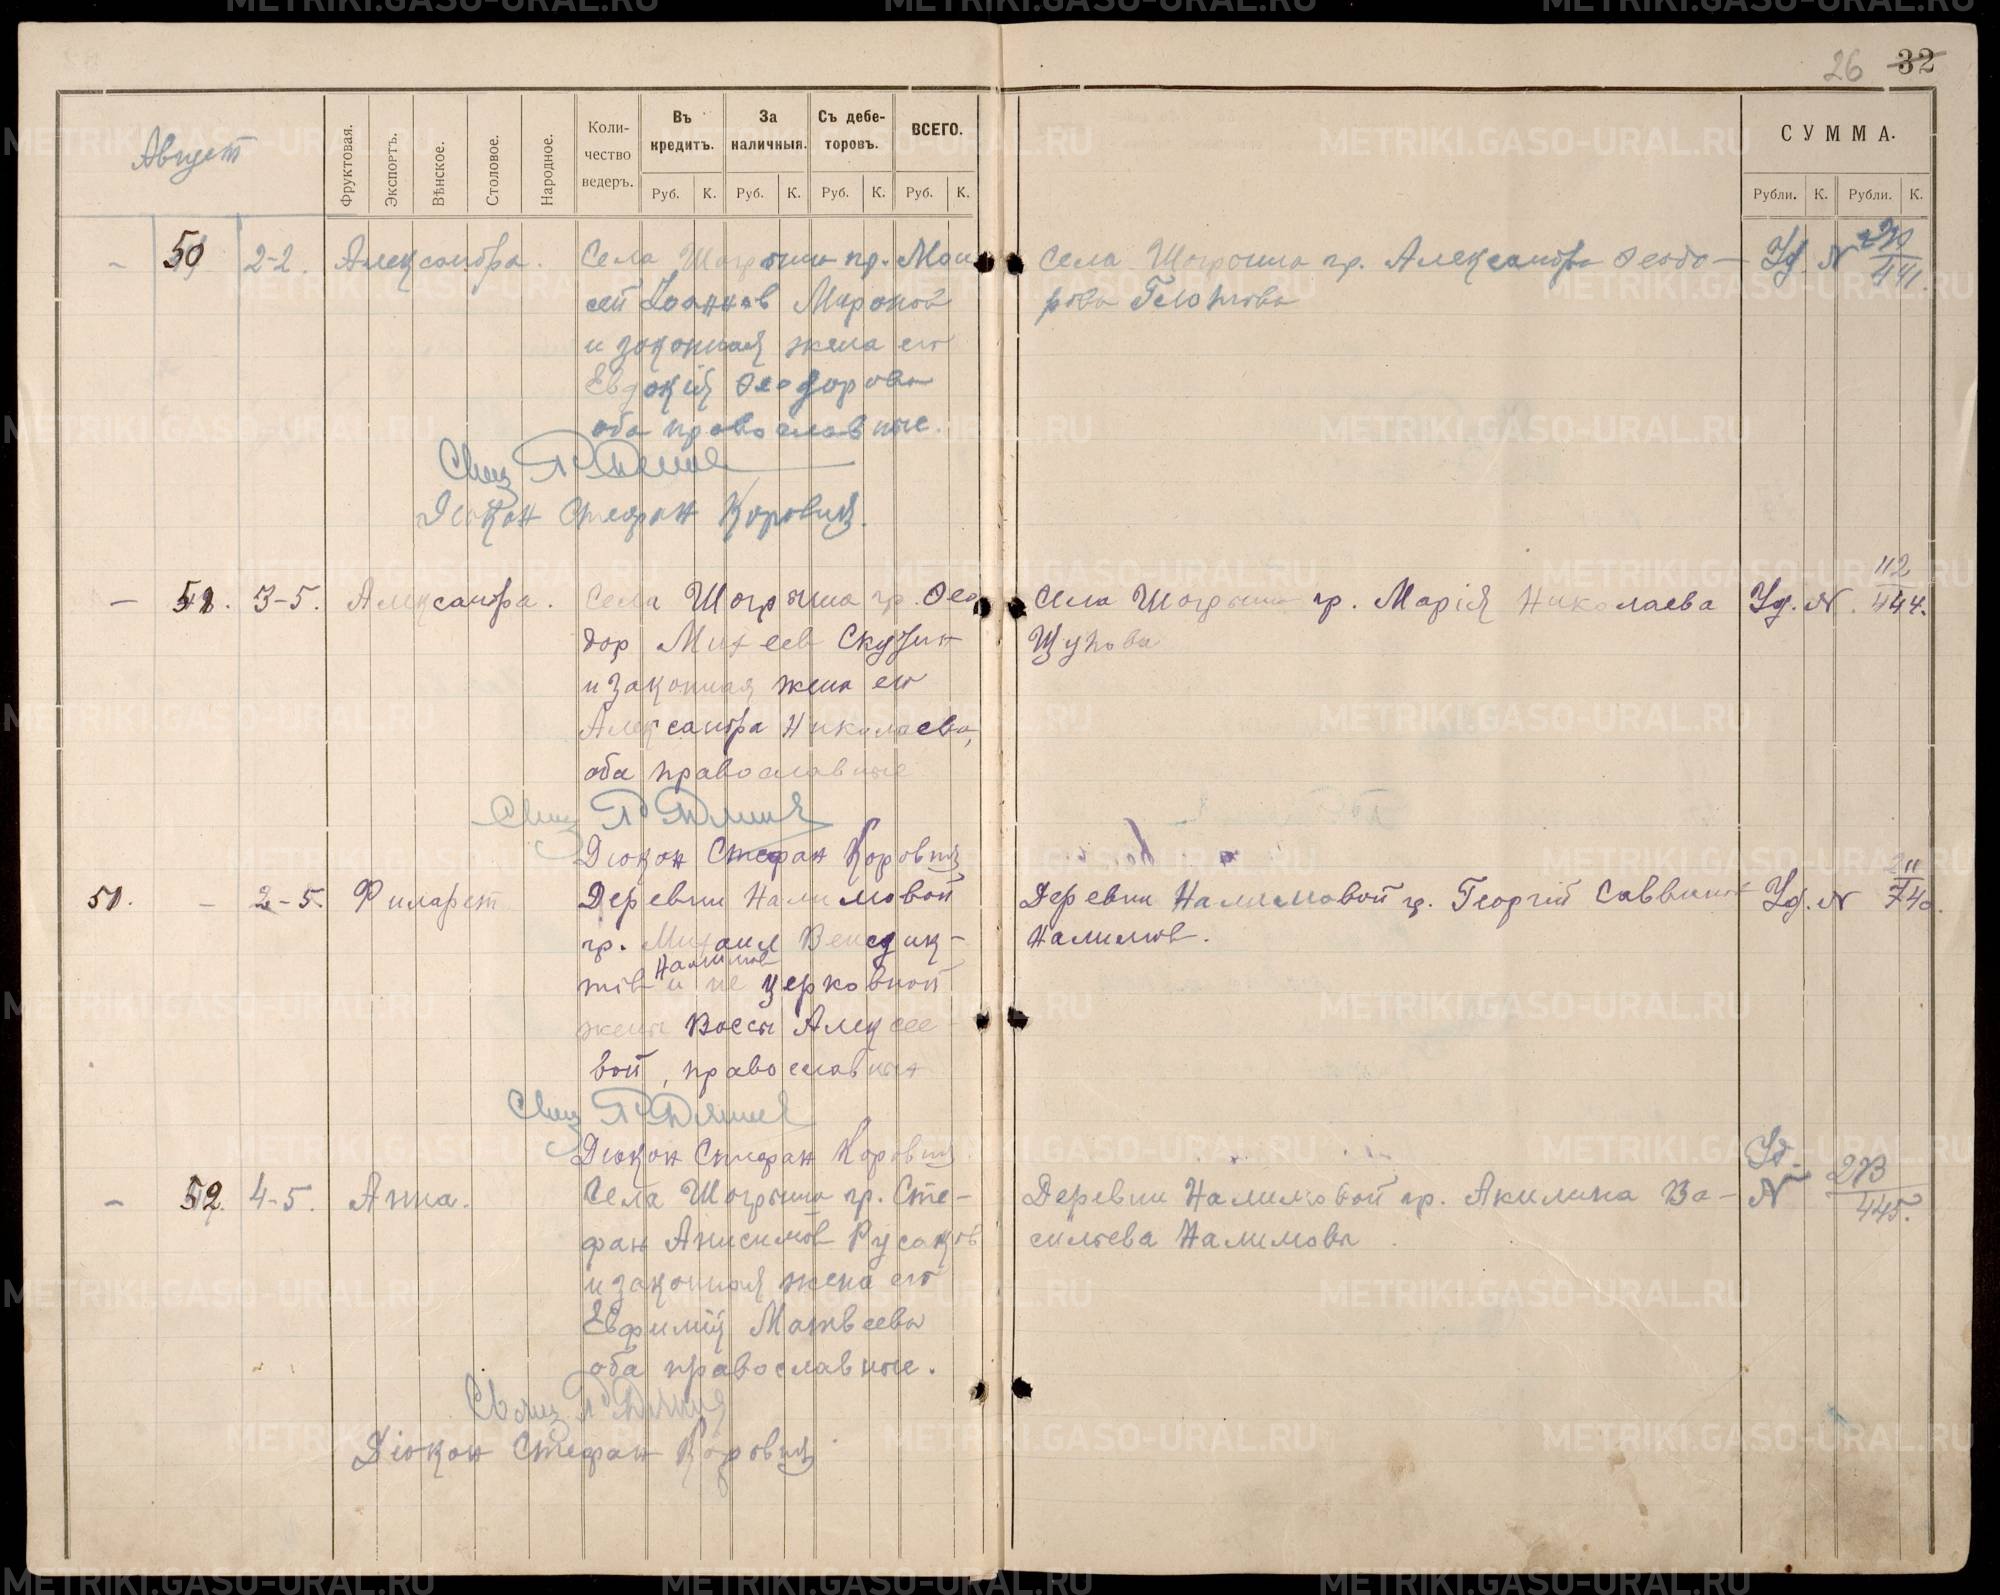 26 32
Август
Фруктовая.
Экспортъ.
Вѣнское.
Столовое.
Народное.
Коли-
чество
ведеръ.
Въ
кредитъ.
За
наличныя.
Съ дебе-
торовъ.
ВСЕГО.
Руб. К. Руб. К. Руб. К. Руб. К.
СУММА.
Рубли. К. Рубли. К.
- 50 2-2. Александра. Села Шогрыша гр. Мои
сей Иоаннов Миронов
и законная жена его
Евдокія Феодорова
оба православные.
Свящ
Діакон Стефан Коровин.
Села Шогрыша гр. Александра Феодо-
рова Глотова
Уд. N
441.
- 51. 3-5. Александра. Села Шогрыша гр. Фео
дор Михеев Скузин
и законная жена его
Александра Николаева,
оба православные
Свящ
Діакон Стефан Коровин
Села Шогрыша гр. Марія Николаева
Щупова
Уд. N. 112
444.
51. - 2-5. Филарет Деревни Налимовой
гр. Михаил Венедик-
тов Налимов и не церковной
жены Вассы Алексее-
вой, православных
Свящ
Діакон Стефан Коровин.
Деревни Налимовой гр. Георгій Саввинов
Налимов.
Уд. N 11
740.
- 52. 4-5. Анна. Села Шогрыша гр. Сте-
фан Анисимов Русаков
и законная жена его
Евфимія Матвеева
оба православные.
Свящ
Діакон Стефан Коровин
Деревни Налимовой гр. Акилина Ва-
сильева Налимова.
Уд.
N 273
445.
METRIKI.GASO-URAL.RU